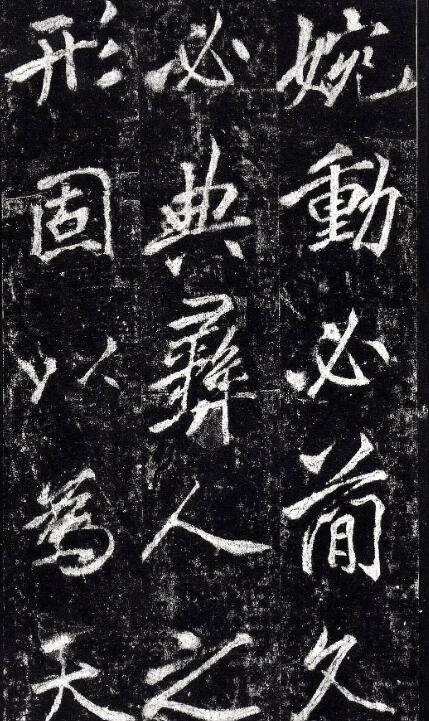 婉動必蕳久
必典彝人之
形固以為天